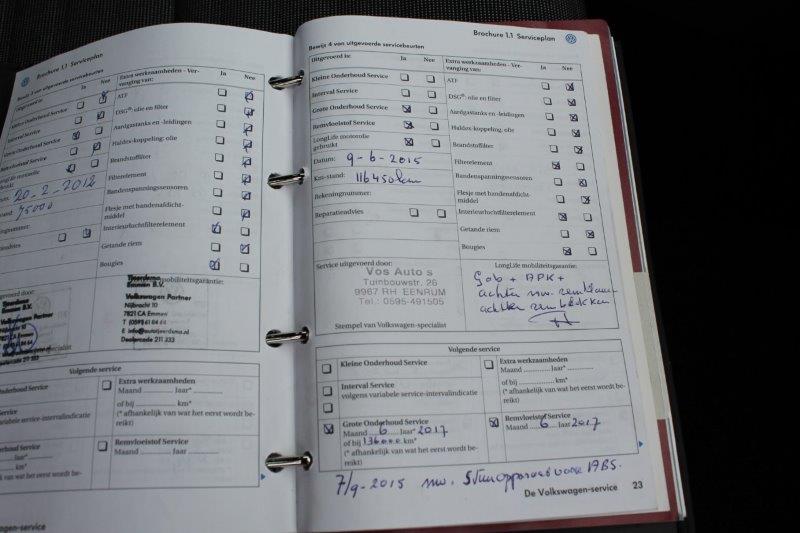 Brochure 1.1 Serviceplan
Bewijs 3 van uitgevoerde servicebeurten
Ja Nee
Extra werkzaamheden - Ver-
vanging van: Ja Nee
Interval Service
ATF
DSG®: olie en filter
Aardgastanks en -leidingen
Haldex-koppeling: olie
Brandstoffilter
Bandenspanningssensoren
Flesje met bandenafdicht-
middel
Interieurluchtfilterelement
Getande riem
Bougies
20-2-2012
75000
mobiliteitsgarantie:
Emmen B.V.
Volkswagen Partner
Nijbracht 10
7821 CA Emmen
Dealercode 211 333
Volgende service
Extra werkzaamheden
Maand ............ jaar............*
of bij ............ km*
(* afhankelijk van wat het eerst wordt be-
reikt)
Remvloeistof Service
Maand ............ jaar............
Brochure 1.1 Serviceplan
Bewijs 4 van uitgevoerde servicebeurten
Uitgevoerd is: Ja Nee
Kleine Onderhoud Service
Interval Service
Grote Onderhoud Service
Remvloeistof Service
LongLife motorolie
gebruikt
Datum: 9-6-2015
Km-stand: 116450km
Rekeningnummer:
Reparatieadvies
Extra werkzaamheden - Ver-
vanging van: Ja Nee
ATF
DSG®: olie en filter
Aardgastanks en -leidingen
Haldex-koppeling: olie
Brandstoffilter
Filterelement
Bandenspanningssensoren
Flesje met bandenafdicht-
middel
Interieurluchtfilterelement
Getande riem
Bougies
Service uitgevoerd door:
Vos Auto s
Tuinbouwstr. 26
9967 RH EENRUM
Tel.: 0595-491505
Stempel van Volkswagen-specialist
LongLife mobiliteitsgarantie:
+ APK +
achter
achter
Volgende service
Kleine Onderhoud Service
Interval Service
volgens variabele service-intervalindicatie
Grote Onderhoud Service
Maand 6 jaar* 2017
of bij 136000 km*
(* afhankelijk van wat het eerst wordt be-
reikt)
Extra werkzaamheden
Maand ............ jaar............*
of bij ............ km*
(* afhankelijk van wat het eerst wordt be-
reikt)
Remvloeistof Service
Maand 6 jaar 2017
7/9-2015
De Volkswagen-service 23